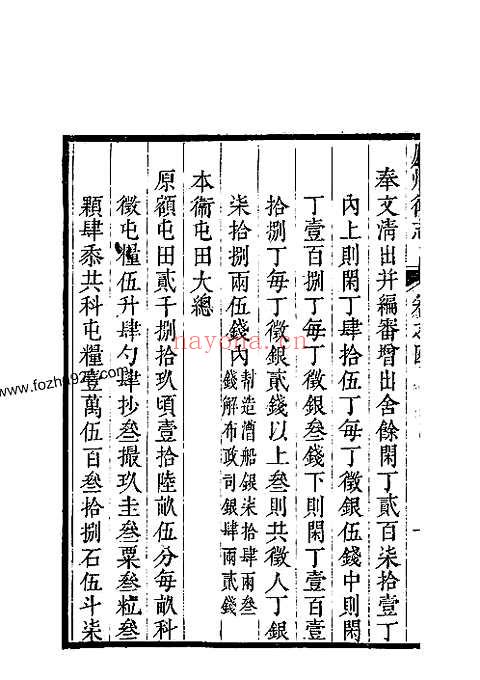 奉文清出并編審增出舍餘閑丁貳百柒拾壹丁
內上則閑丁肆拾伍丁每丁徵銀伍錢中則閑
丁壹百捌丁每丁徵銀叁錢下則閑丁壹百壹
拾捌丁每丁徵銀貳錢以上叁則共徵人丁銀
柒拾捌兩伍錢內
幇造漕船銀柒拾肆兩叁
錢解布政司銀肆兩貳錢
本衛屯田大總
原額屯田貳千捌拾玖頃壹拾陸畝伍分每畝科
徵屯糧伍升肆勺肆抄叁撮玖圭叁粟叁粒叁
顆肆黍共科屯糧壹萬伍百叁拾捌石伍斗柒
nayona.cn